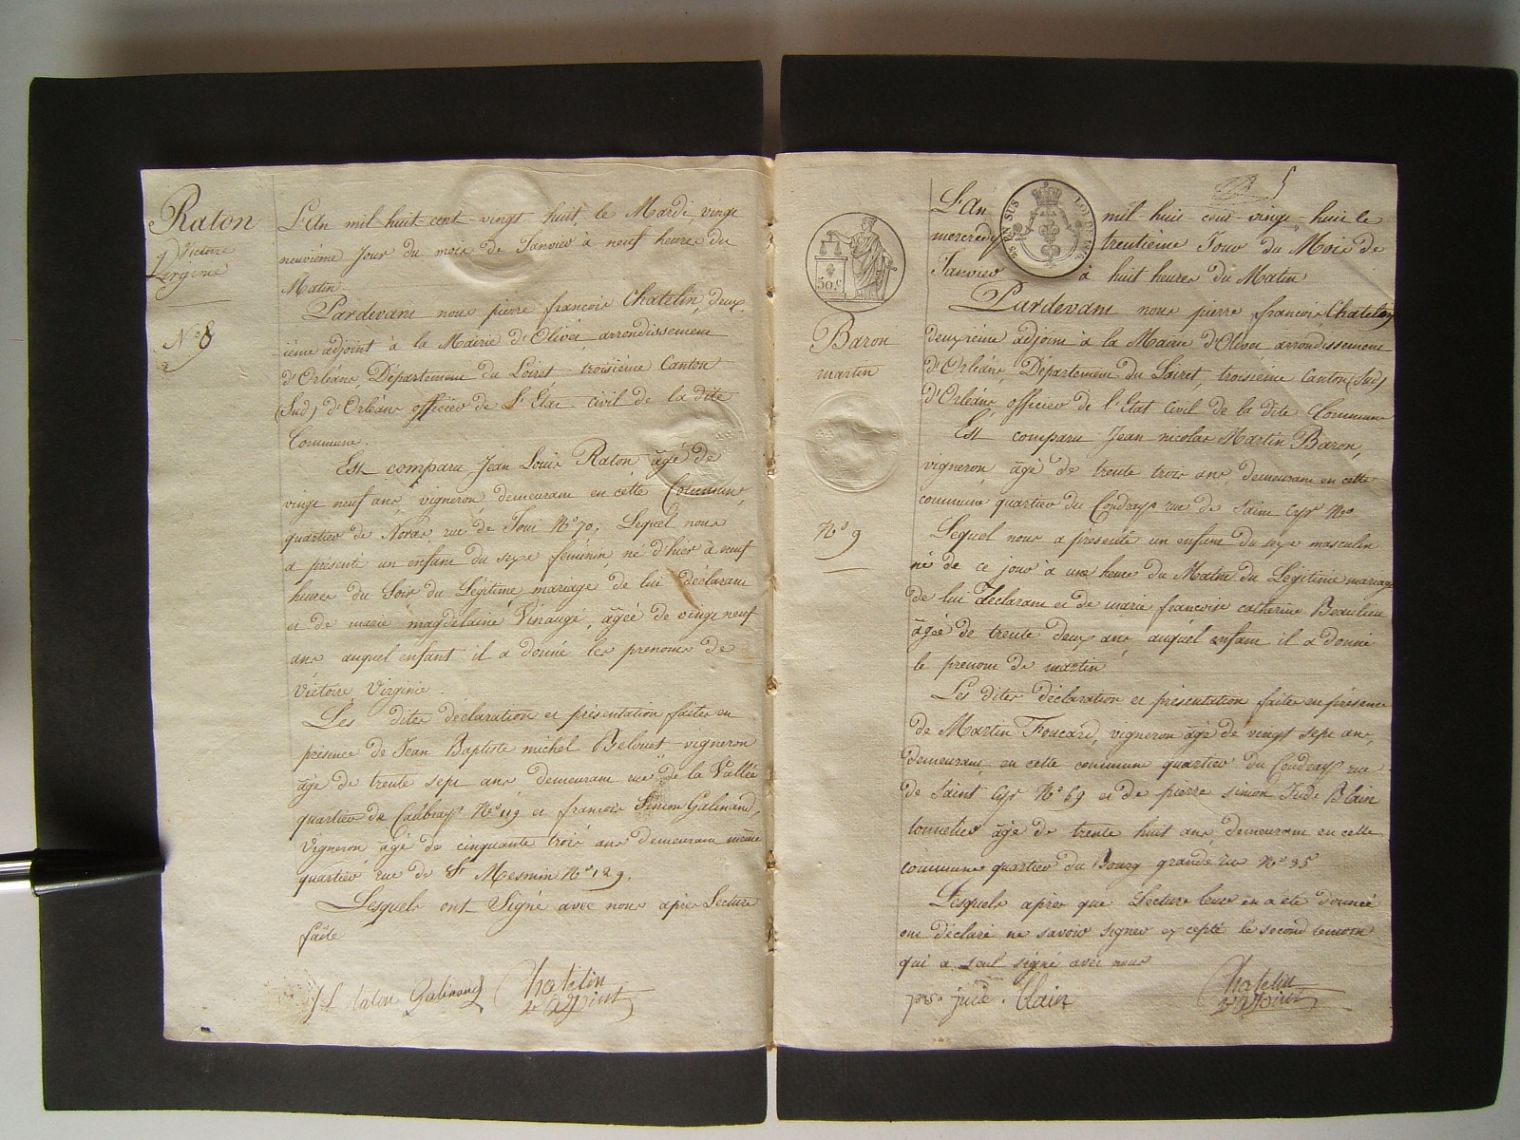 Raton
Victoire
Virginie
N° 8
L'An mil huit cent vingt huit le Mardi vingt
neuvième Jour du mois de Janvier à neuf heures du
Matin.
Pardevant nous pierre françois Chatelin, deux
ième adjoint à la Mairie d'Olivet arrondissement
d'Orléans, Département du Loiret troisième Canton
(Sud) d'Orléans officier de l'Etat civil de la dite
Commune.
Est comparu Jean Louis Raton âgé de
vingt neuf ans, vigneron, demeurant en cette Commune,
quartier du Nord rue de N° 70. Lequel nous
a présenté un enfant du sexe féminin, né d'hier à neuf
heures du Soir du Légitime mariage de lui déclarant
et de marie magdelaine Vinauge, agée de vingt neuf
ans auquel enfant il a donné les prenoms de
Victoire Virginie.
Les dites déclaration et présentation faites en
présence de Jean Baptiste michel Belouet vigneron
âgé de trente sept ans demeurant rue de la Vallée
quartier du N° 119 et francois Simon Galinand,
Vigneron âgé de cinquante trois ans demeurant même
quartier rue de St Mesmin N° 129.
Lesquels ont Signé avec nous après Lecture
faite
J L Raton Galinand Chatelin
2e adjoint
5
50 c
EN SUS
LOI DE 1816
Baron
martin
N° 9
L'An mil huit cent vingt huit le
mercredy trentième Jour du Mois de
Janvier à huit heures du Matin
Pardevant nous pierre françois Chatelin
deuxième adjoint à la Mairie d'Olivet arrondissement
d'Orléans, Département du Loiret, troisième Canton (Sud)
d'Orléans officier de l'Etat Civil de la dite Commune
Est comparu Jean nicolas Martin Baron,
vigneron, âgé de trente trois ans, demeurant en cette
commune quartier du Coudray rue de Saint Cyr N°
Lequel nous a présenté un enfant du sexe masculin
né de ce jour à une heure du Matin du Légitime mariage
de lui déclarant et de marie françoise catherine Beaulieu
âgée de trente deux ans auquel enfant il a donné
le prenom de martin
Les dites déclaration et présentation faites en présence
de Martin Foucard, vigneron âgé de vingt sept ans,
demeurant en cette commune quartier du Coudray rue
de Saint Cyr N° 69 et de pierre simon Jude Blain
tonnelier âgé de trente huit ans demeurant en cette
commune quartier du Bourg grande rue N° 35
Lesquels après que Lecture leur en a été donnée
ont déclaré ne savoir signer excepté le second temoin
qui a seul signé avec nous
jude. blain Chatelin
2e adjoint